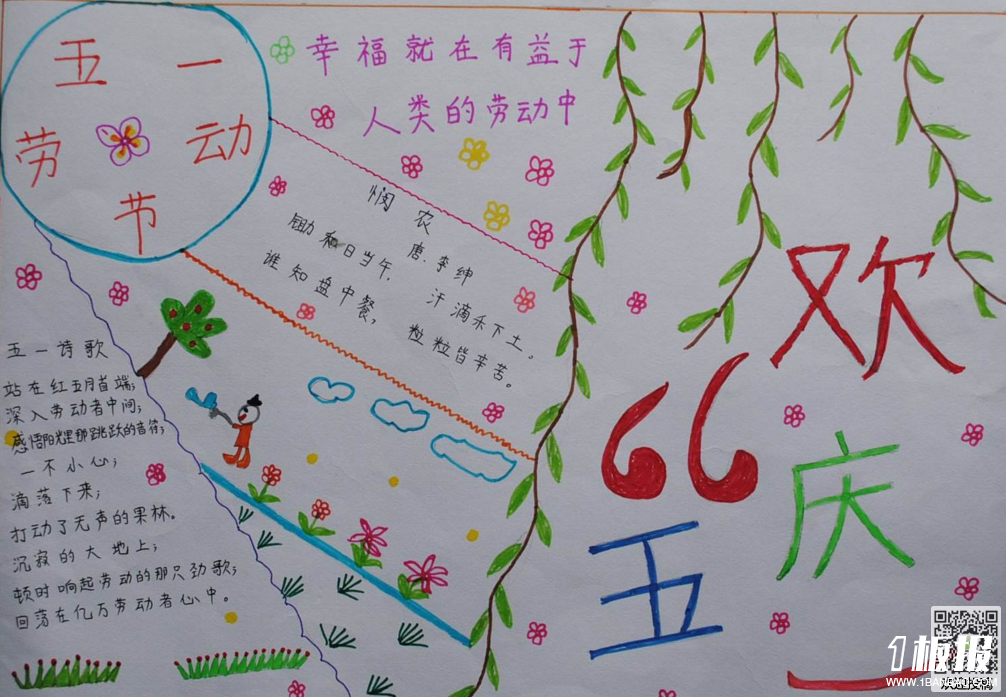 五一
劳动
节
幸福就在有益于
人类的劳动中
悯农
唐.李绅
锄和日当午，汗滴禾下土。
谁知盘中餐，粒粒皆辛苦。
五一诗歌
站在红五月首端；
深入劳动者中间；
感悟阳光里那跳跃的音符；
一不小心；
滴落下来；
打动了无声的果林。
沉寂的大地上；
顿时响起劳动的那只劲歌；
回落在亿万劳动者心中。
欢
庆
“五
一
1板报
WWW.1BANBAO.COM